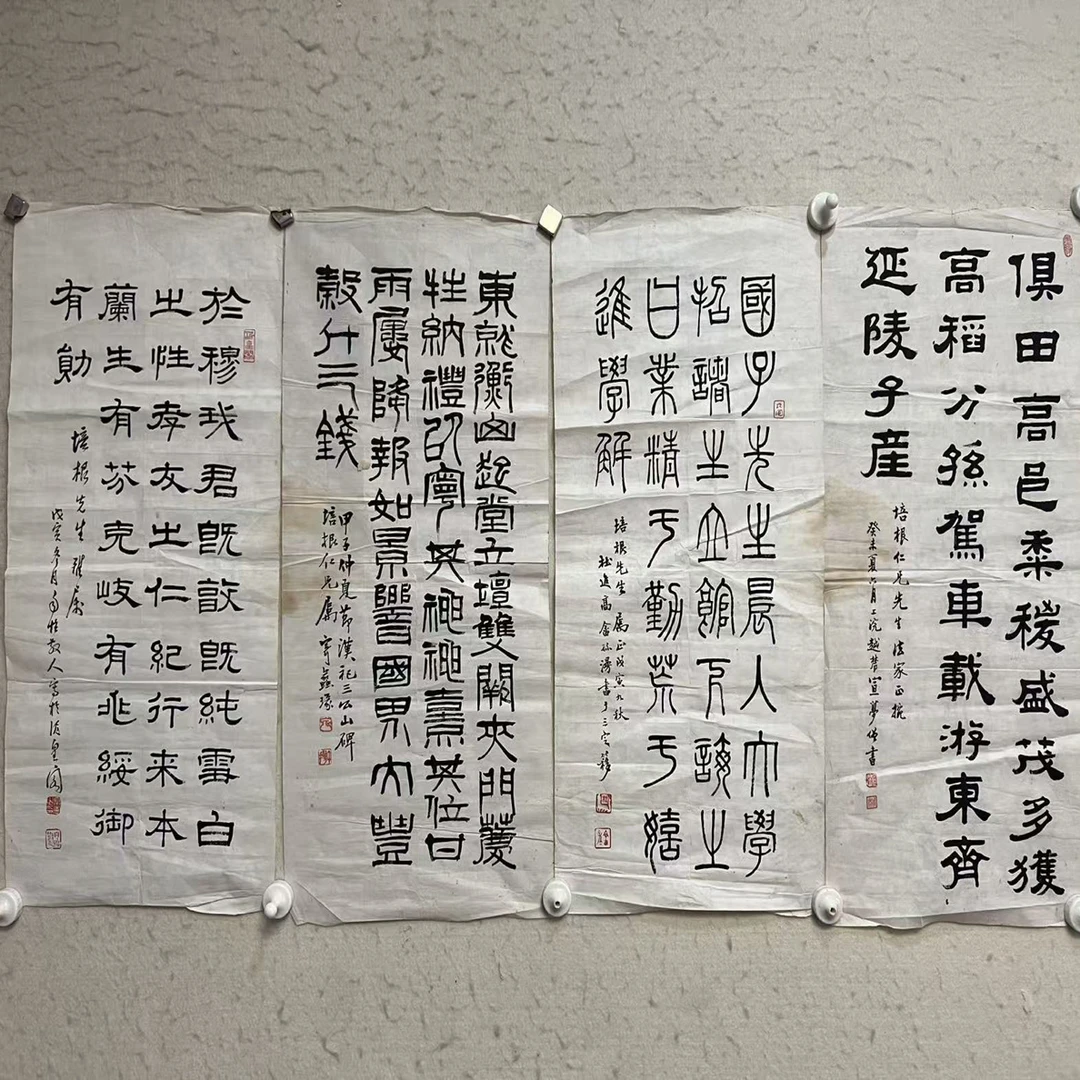 俱田高邑黍稷盛茂多獲
高稻分孫駕車載游東齊
延陵子產
培根仁兄先生法家正
癸未夏六月 書
國子先生晨入大學
招諸生立館下誨之
曰業精于勤荒于嬉
進學解
培根先生屬正戊寅九秋
東就衡山起堂立壇雙闕夾門薦
牲納禮以寧其神神熹其位甘
雨屢降報如景響國界大豐
穀斗三錢
甲子仲夏節漢祀三公山碑
培根仁兄屬
於穆我君既敦既純雪白
之性孝友之仁紀行来本
蘭生有芬克岐有兆綏御
有勛
培根先生雅屬
戊寅冬月